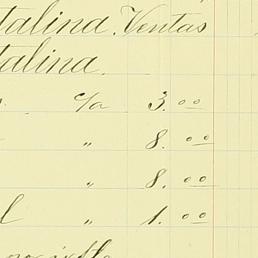 talina. Ventas
talina.
c/a 3. 00
" 8. 00
" 8. 00
l " 1. 00